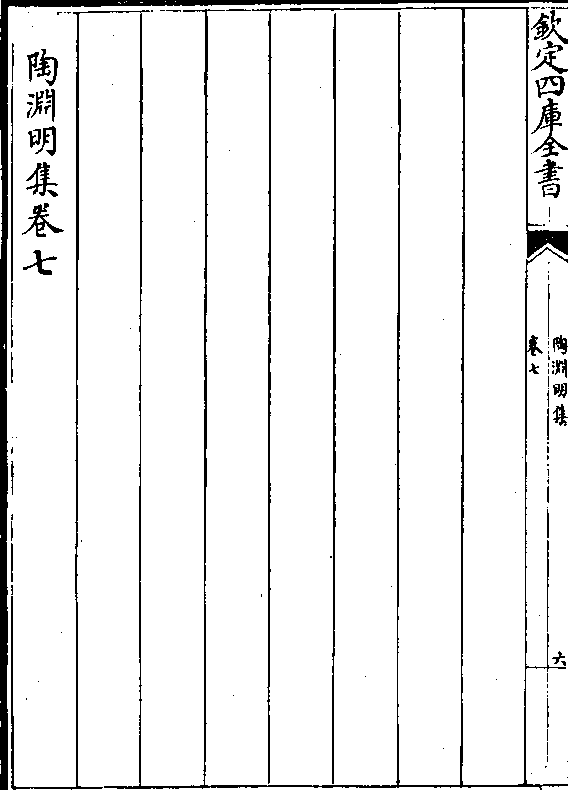 欽定四庫全書
陶淵明集
卷七
六
陶淵明集卷七